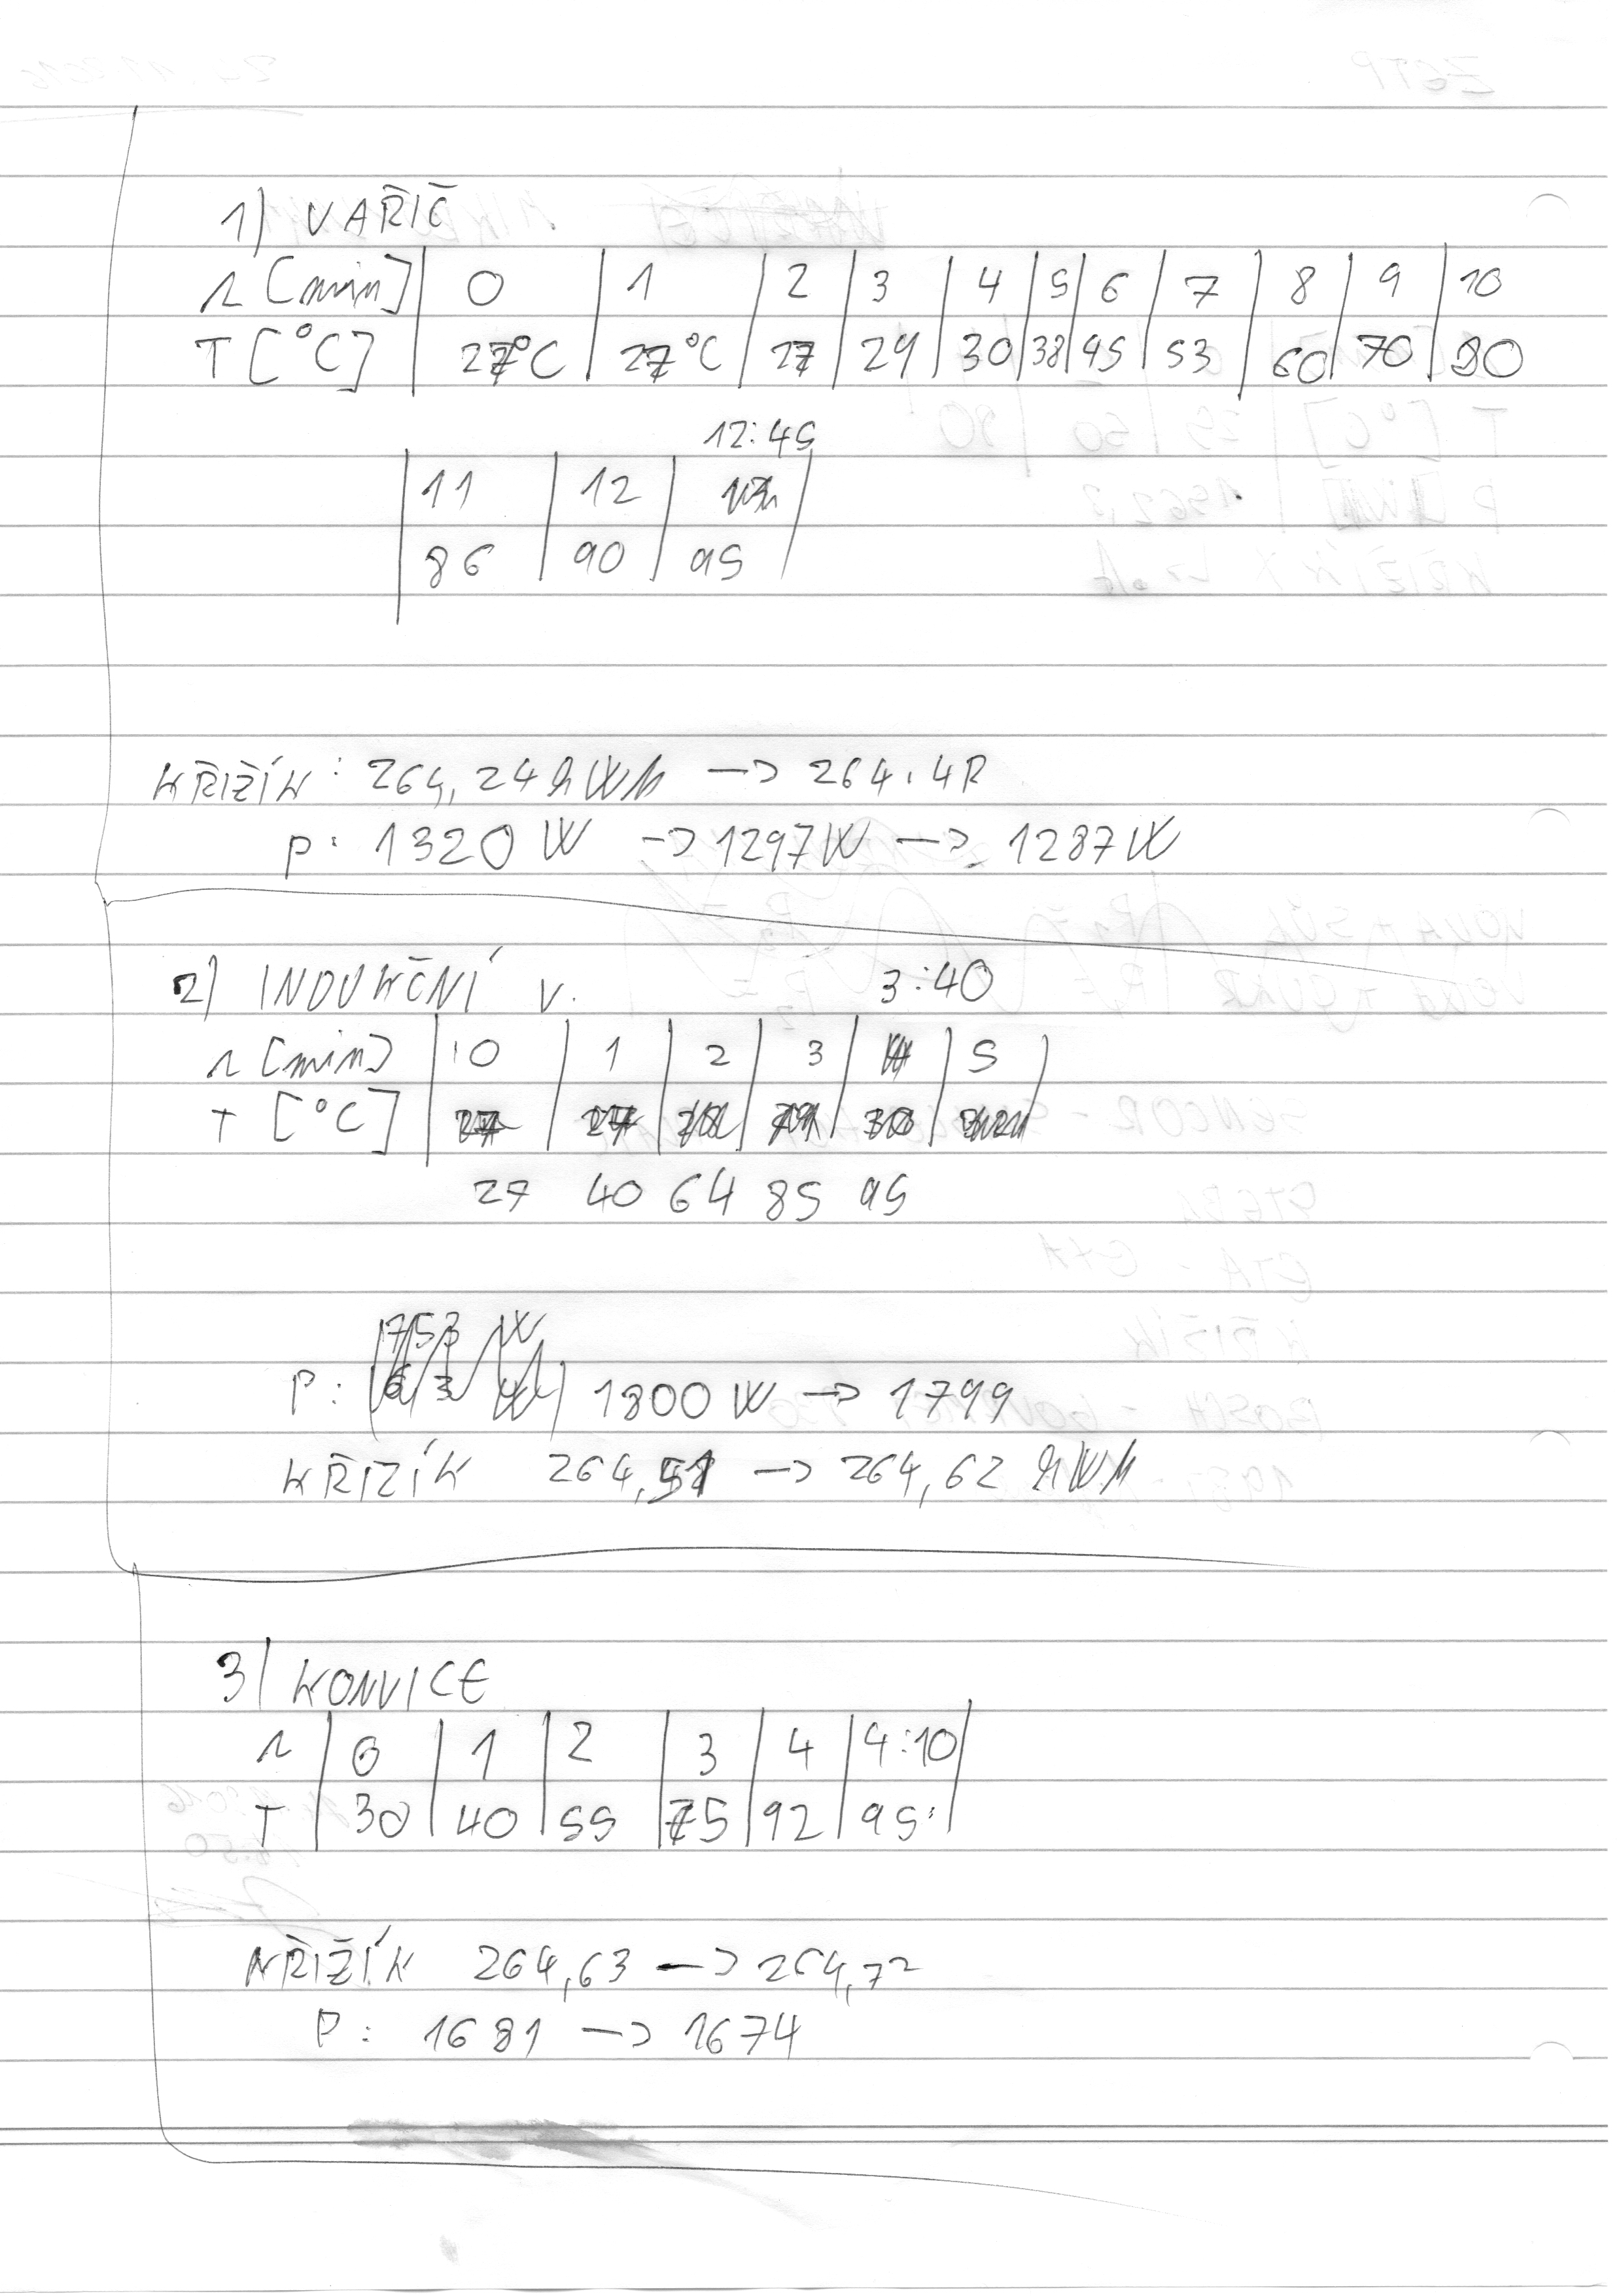 1) VAŘIČ
t [min] 0 1 2 3 4 5 6 7 8 9 10
T [°C] 27°C 27°C 27 29 30 38 45 53 60 70 80
12:45
11 12
86 90 95
KŘIŽÍK: 264,24 kWh -> 264.48
P: 1320 W -> 1297W -> 1287W
2) INDUKČNÍ V. 3:40
t [min] 0 1 2 3 5
T [°C]
27 40 64 85 95
P: 1800 W -> 1799
KŘIŽÍK 264,51 -> 264,62 kWh
3) KONVICE
t 0 1 2 3 4 4:10
T 30 40 55 75 92 95
KŘIŽÍK 264,63 -> 264,72
P: 1681 -> 1674